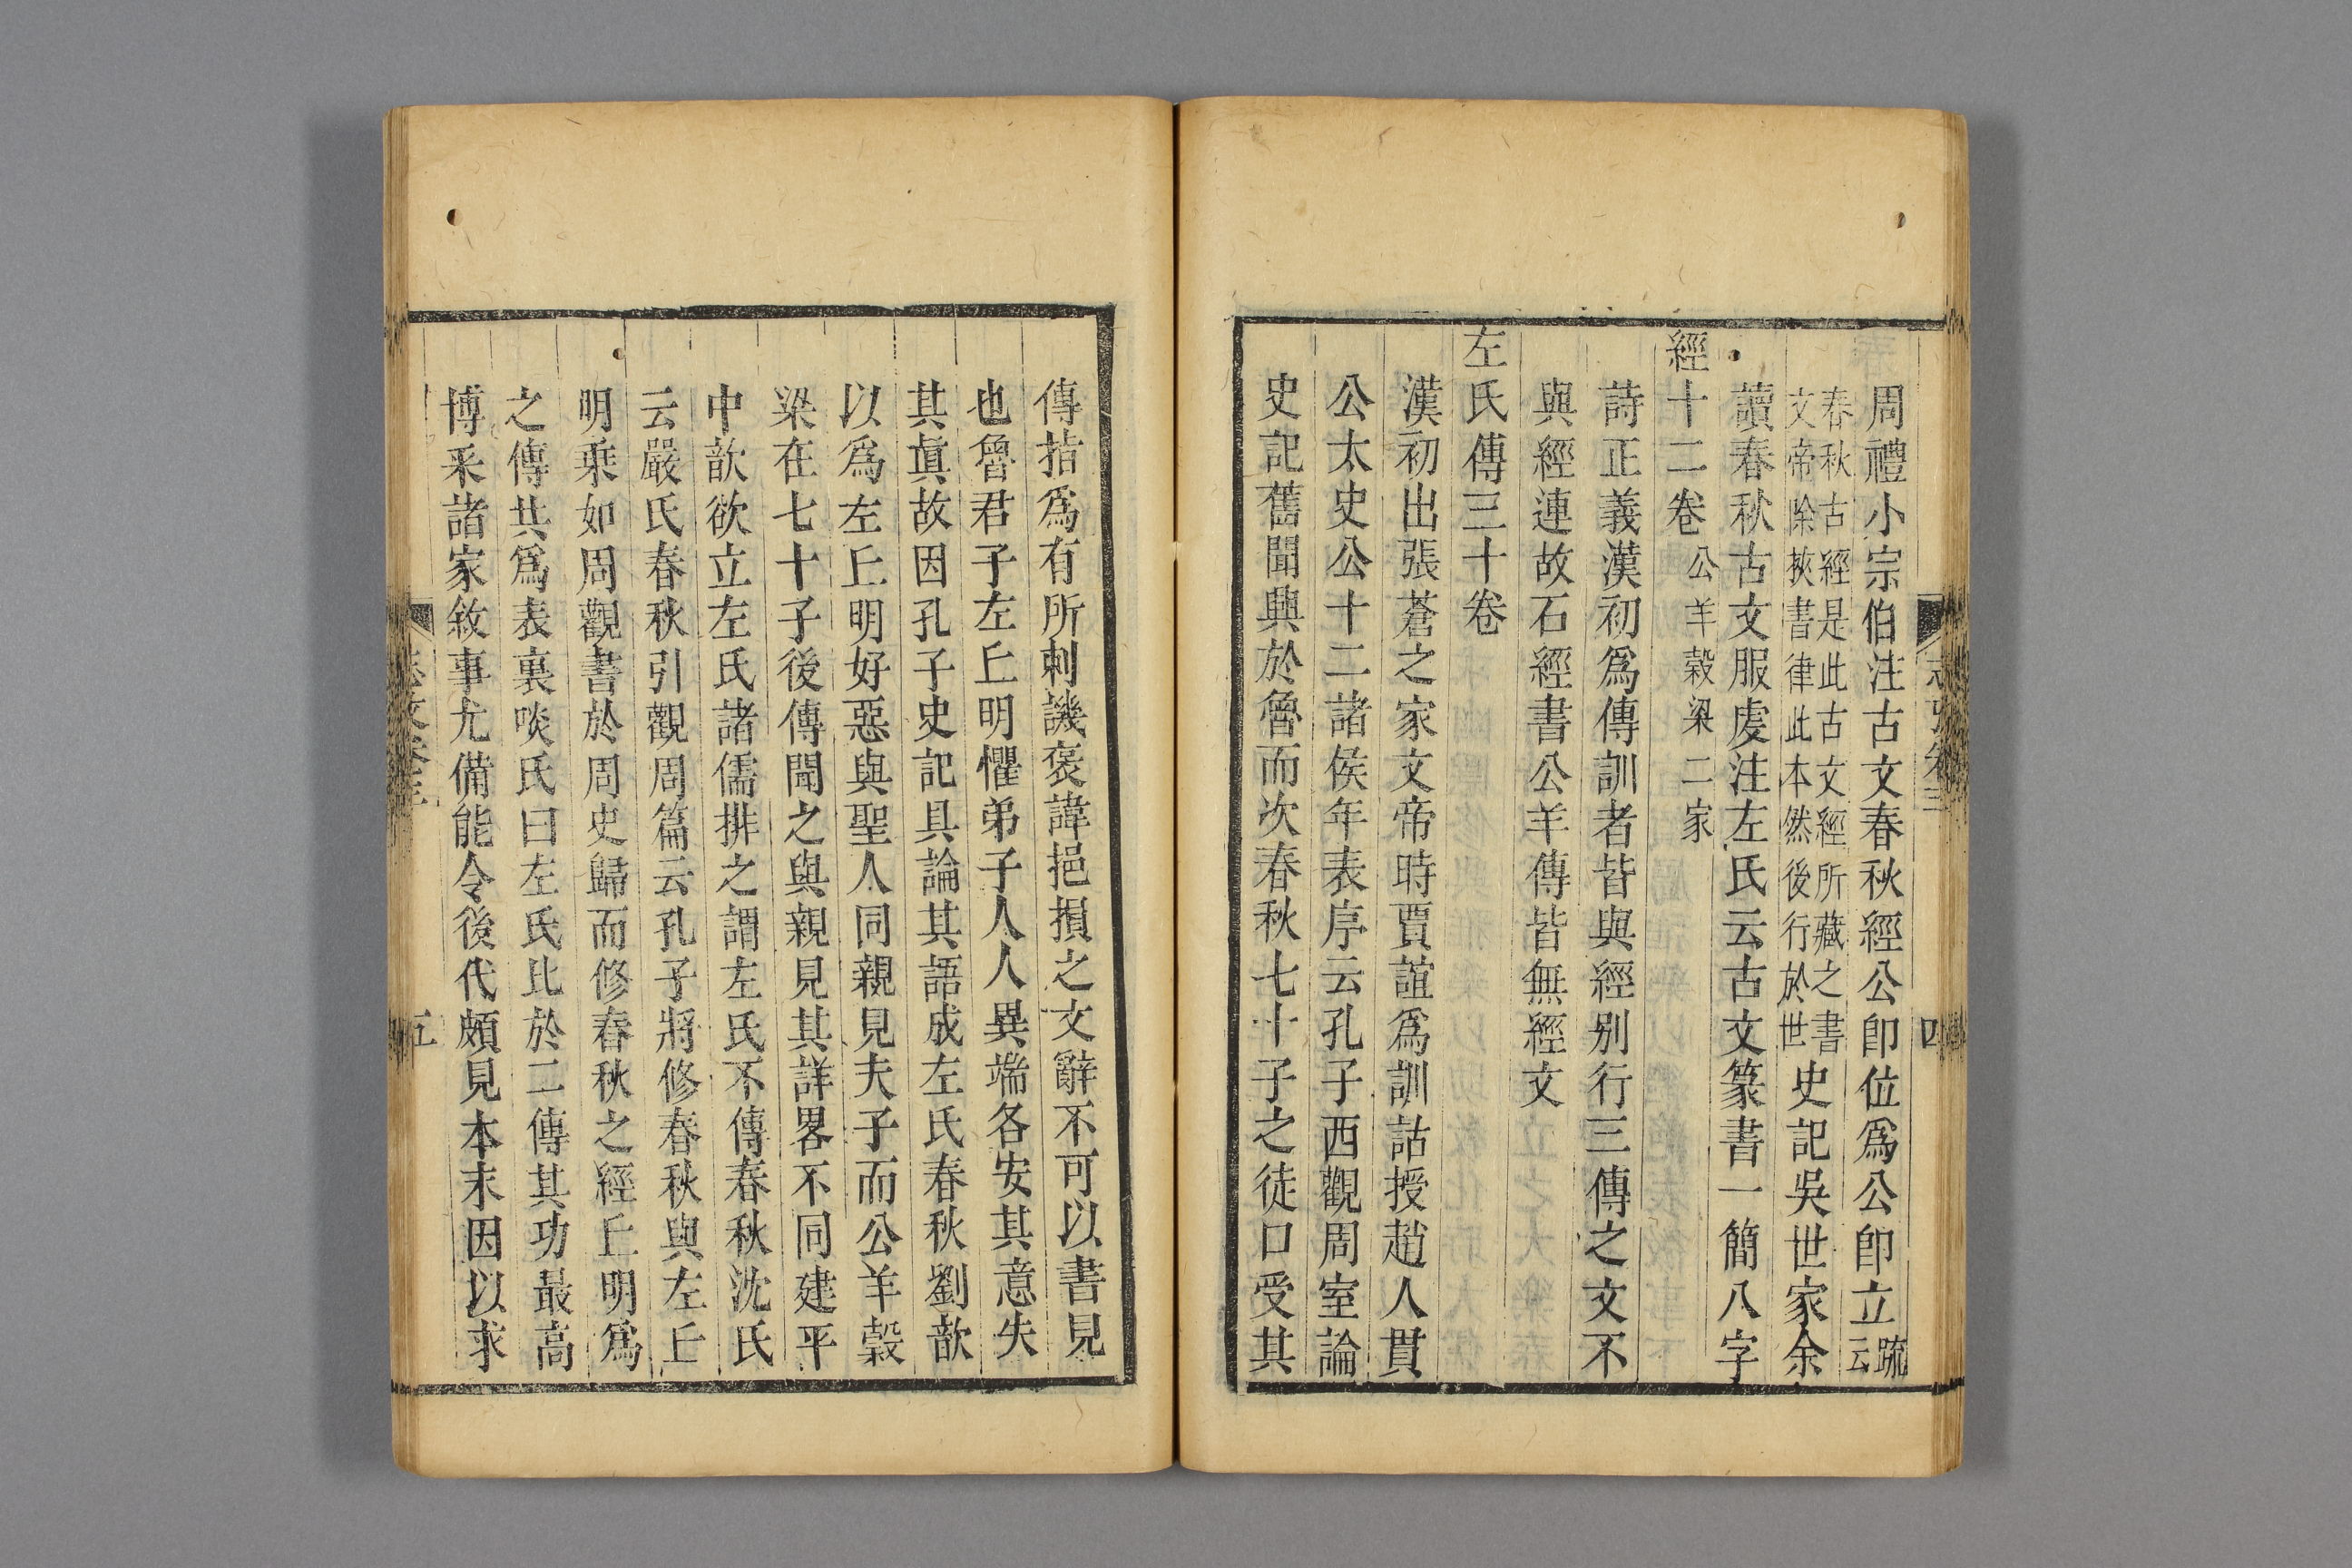 周禮小宗伯注古文春秋經公卽位爲公卽立疏云
春秋古經是此古文經所藏之書文帝除挾書律此本然後行於世史記吳世家余
讀春秋古文服虔注左氏云古文篆書一簡八字
經十二卷公羊穀梁二家
詩正義漢初爲傳訓者皆與經別行三傳之文不
與經連故石經書公羊傳皆無經文
左氏傳三十卷
漢初出張蒼之家文帝時賈誼爲訓詁授趙人貫
公太史公十二諸侯年表序云孔子西觀周室論
史記舊聞興於魯而次春秋七十子之徒口受其
四
傳指爲有所刺譏褒諱挹損之文辭不可以書見
也魯君子左丘明懼弟子人人異端各安其意失
其眞故因孔子史記具論其語成左氏春秋劉歆
以爲左丘明好惡與聖人同親見夫子而公羊穀
梁在七十子後傳聞之與親見其詳畧不同建平
中歆欲立左氏諸儒排之謂左氏不傳春秋沈氏
云嚴氏春秋引觀周篇云孔子將修春秋與左丘
明乘如周觀書於周史歸而修春秋之經丘明爲
之傳共爲表裏啖氏曰左氏比於二傳其功最高
博采諸家敘事尤備能令後代頗見本末因以求
五